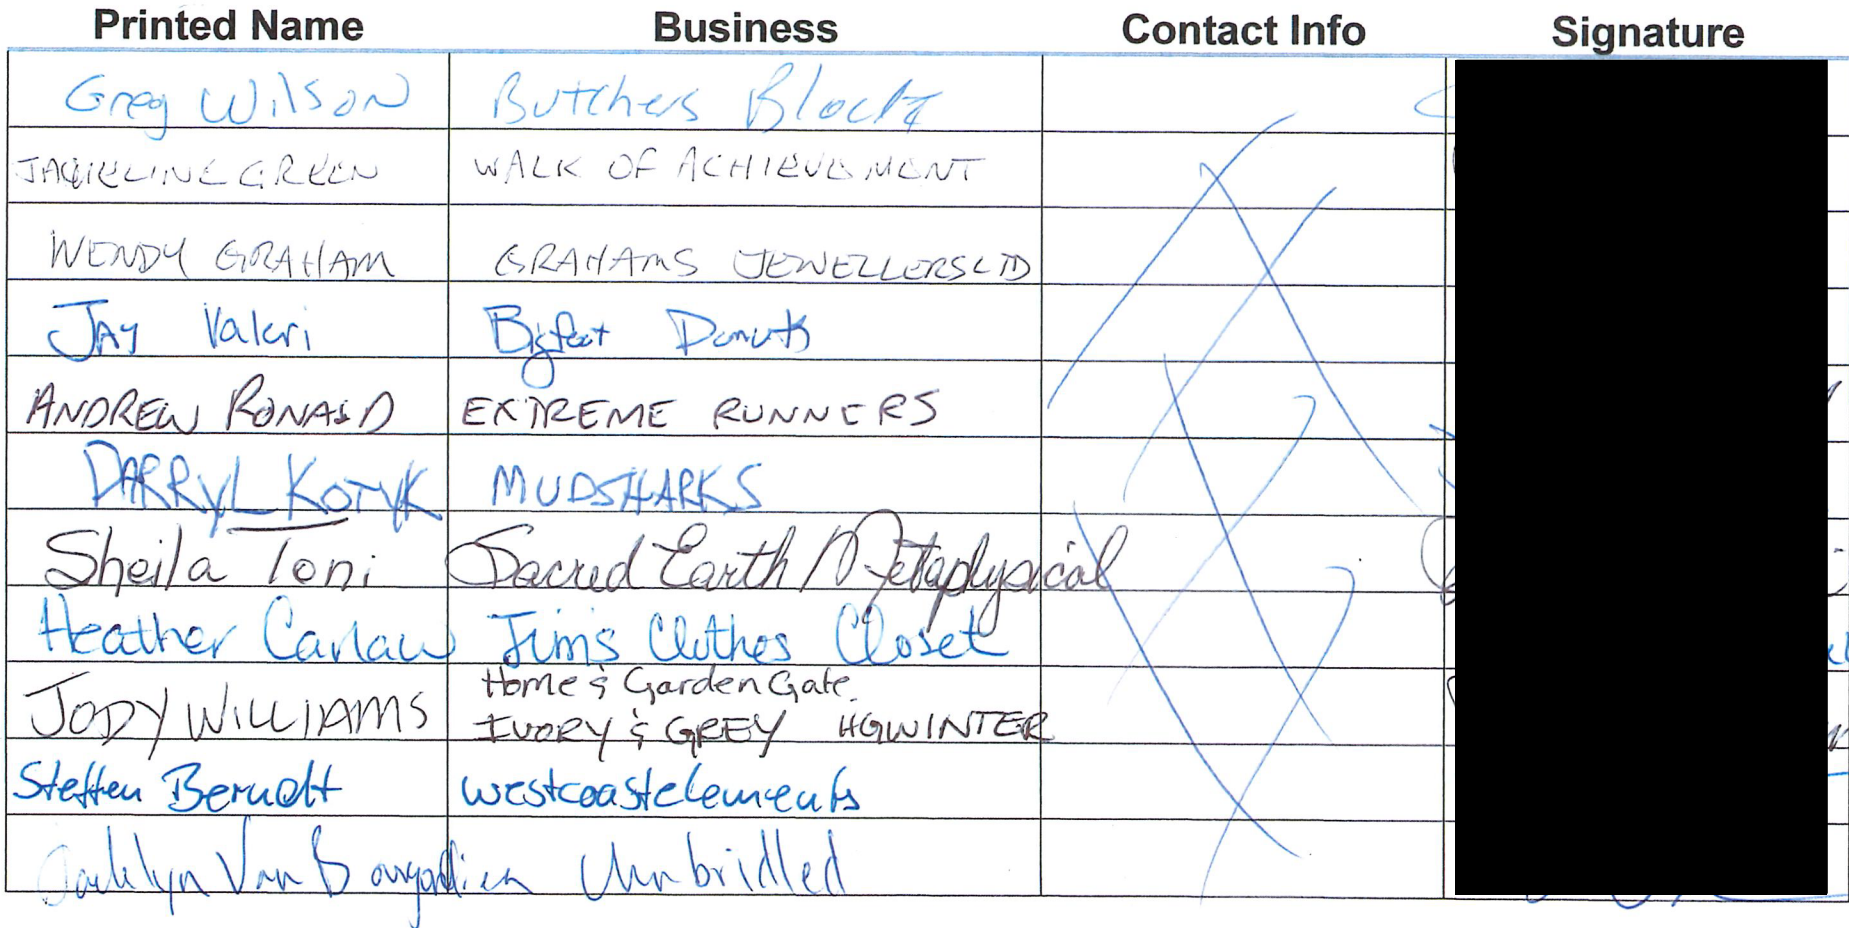 Printed Name Business Contact Info Signature
Greg Wilson Butchers Block
JAQUELINE GREEN WALK OF ACHIEVEMENT
WENDY GRAHAM GRAHAMS JEWELLERS LTD
JAY Valeri Bigfoot Donuts
ANDREW RONALD EXTREME RUNNERS
DARRYL KOTYK MUDSHARKS
Sheila Toni Sacred Earth Metaplysical
Heather Carlaw Jim's Clothes Closet
JODY WILLIAMS Home & Garden Gate
IVORY & GREY HGWINTER
Steffen Berndt westcoastelements
Van Unbridled